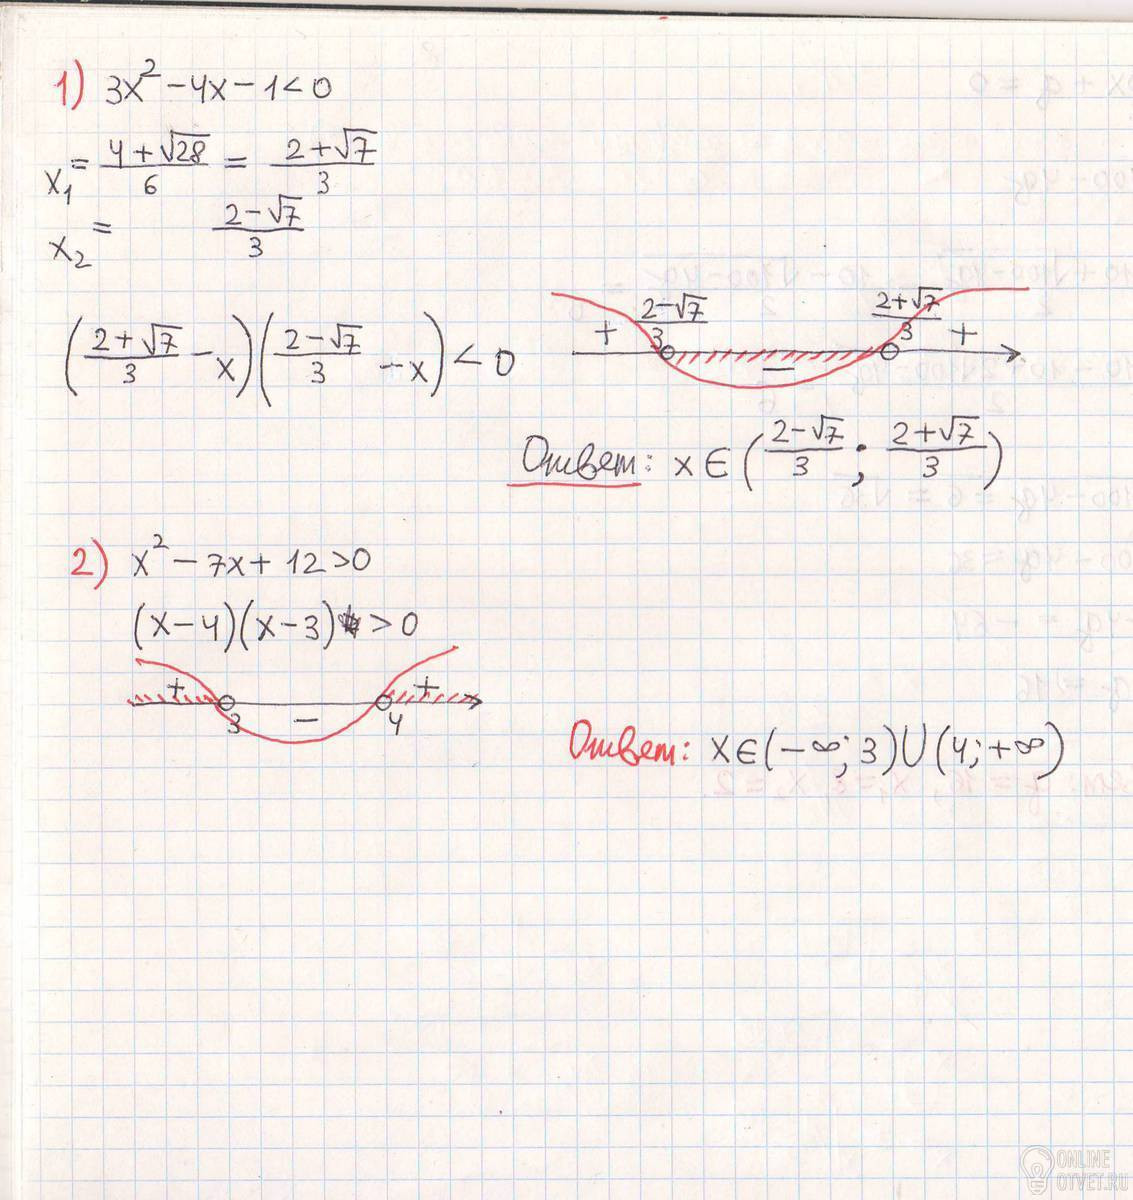 1) 3x² − 4x − 1 < 0
x₁ = (4 + √28)/6 = (2 + √7)/3
x₂ = (2 − √7)/3
((2 + √7)/3 − x)((2 − √7)/3 − x) < 0
+ (2 − √7)/3 − (2 + √7)/3 +
Ответ: x ∈ ((2 − √7)/3 ; (2 + √7)/3)
2) x² − 7x + 12 > 0
(x − 4)(x − 3) > 0
+ 3 − 4 +
Ответ: x ∈ (−∞; 3) ∪ (4; +∞)
ONLINE
OTVET.RU